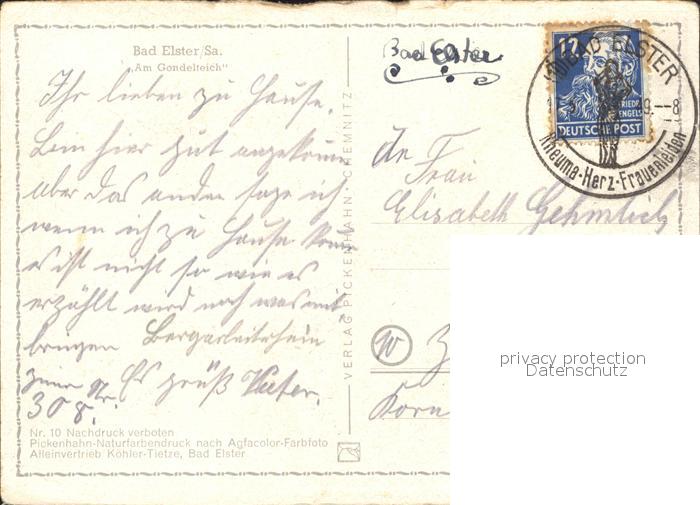 Bad Elster/Sa.
„Am Gondelteich“
Ihr lieben zu Hause.
bin hier gut angekommen
aber das andre sage ich
wenn ich zu Hause
es ist nicht so wie es
erzählt wird noch was mit
bringen Bergarbeiterschein
Zimr Nr. Es grüß Vater.
308.
Nr. 10 Nachdruck verboten
Pickenhahn-Naturfarbendruck nach Agfacolor-Farbfoto
Alleinvertrieb Köhler-Tietze, Bad Elster
VERLAG PICKENHAHN - CHEMNITZ
Bad Elster
12
FRIEDR. ENGELS
DEUTSCHE POST
BAD ELSTER
9.—8
Rheuma-Herz-Frauenleiden
An
Frau
Elisabeth Gehmlich
privacy protection
Datenschutz